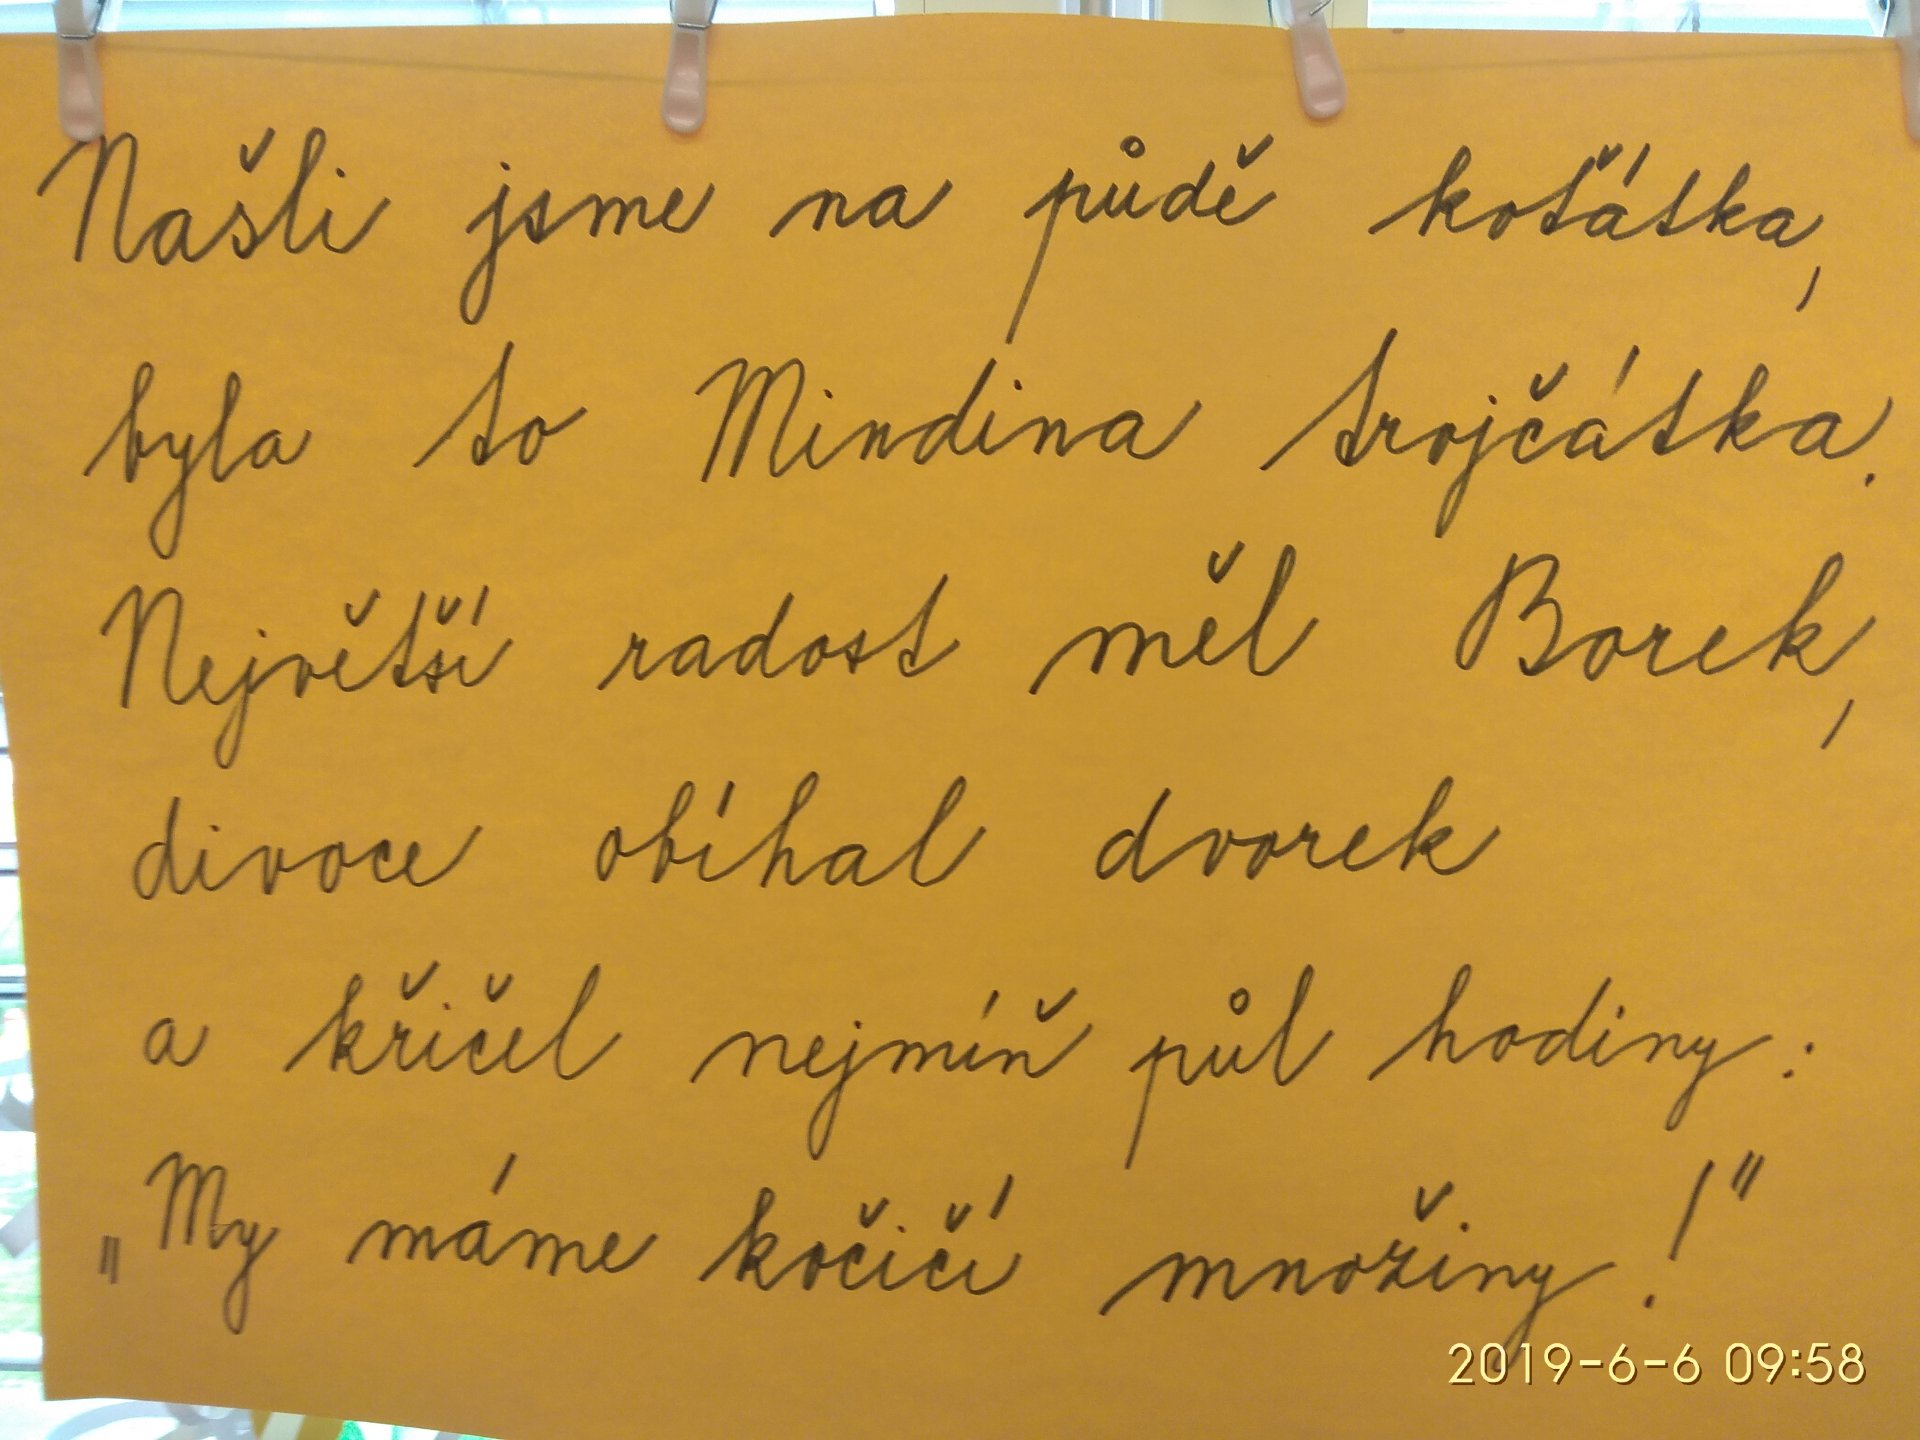 Našli jsme na půdě koťátka,
byla to Mindina trojčátka.
Největší radost měl Borek,
divoce obíhal dvorek
a křičel nejmíň půl hodiny:
„My máme kočičí množiny!"
2019-6-6 09:58